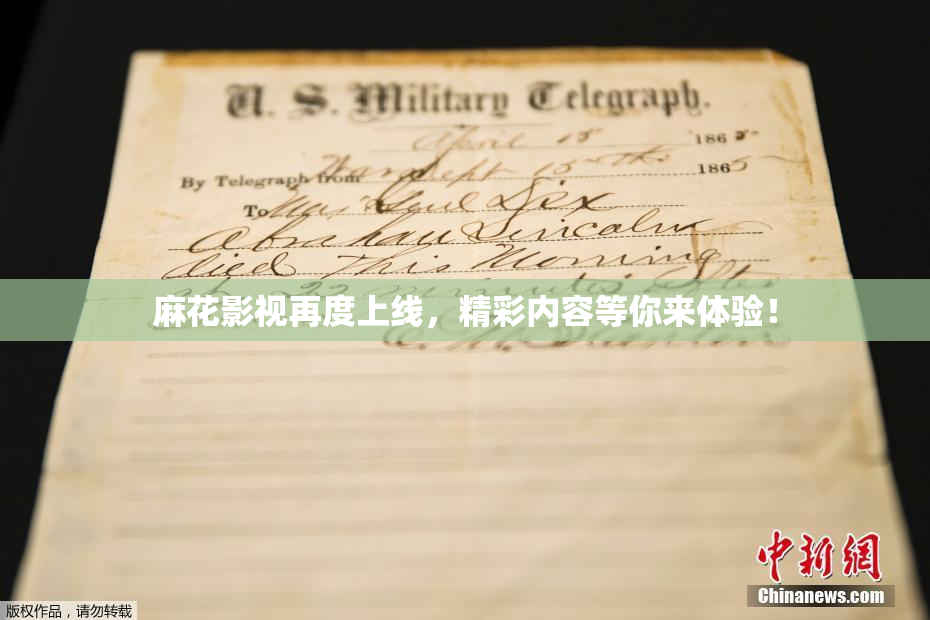 U. S. Military Telegraph.
April 15 1865
By Telegraph from War Dept 15th 1865
To Maj Genl Dix
Abraham Lincoln
died This Morning
at 22 minutes after
麻花影视再度上线，精彩内容等你来体验！
E. M. Stanton
中新網
Chinanews.com
版权作品，请勿转载